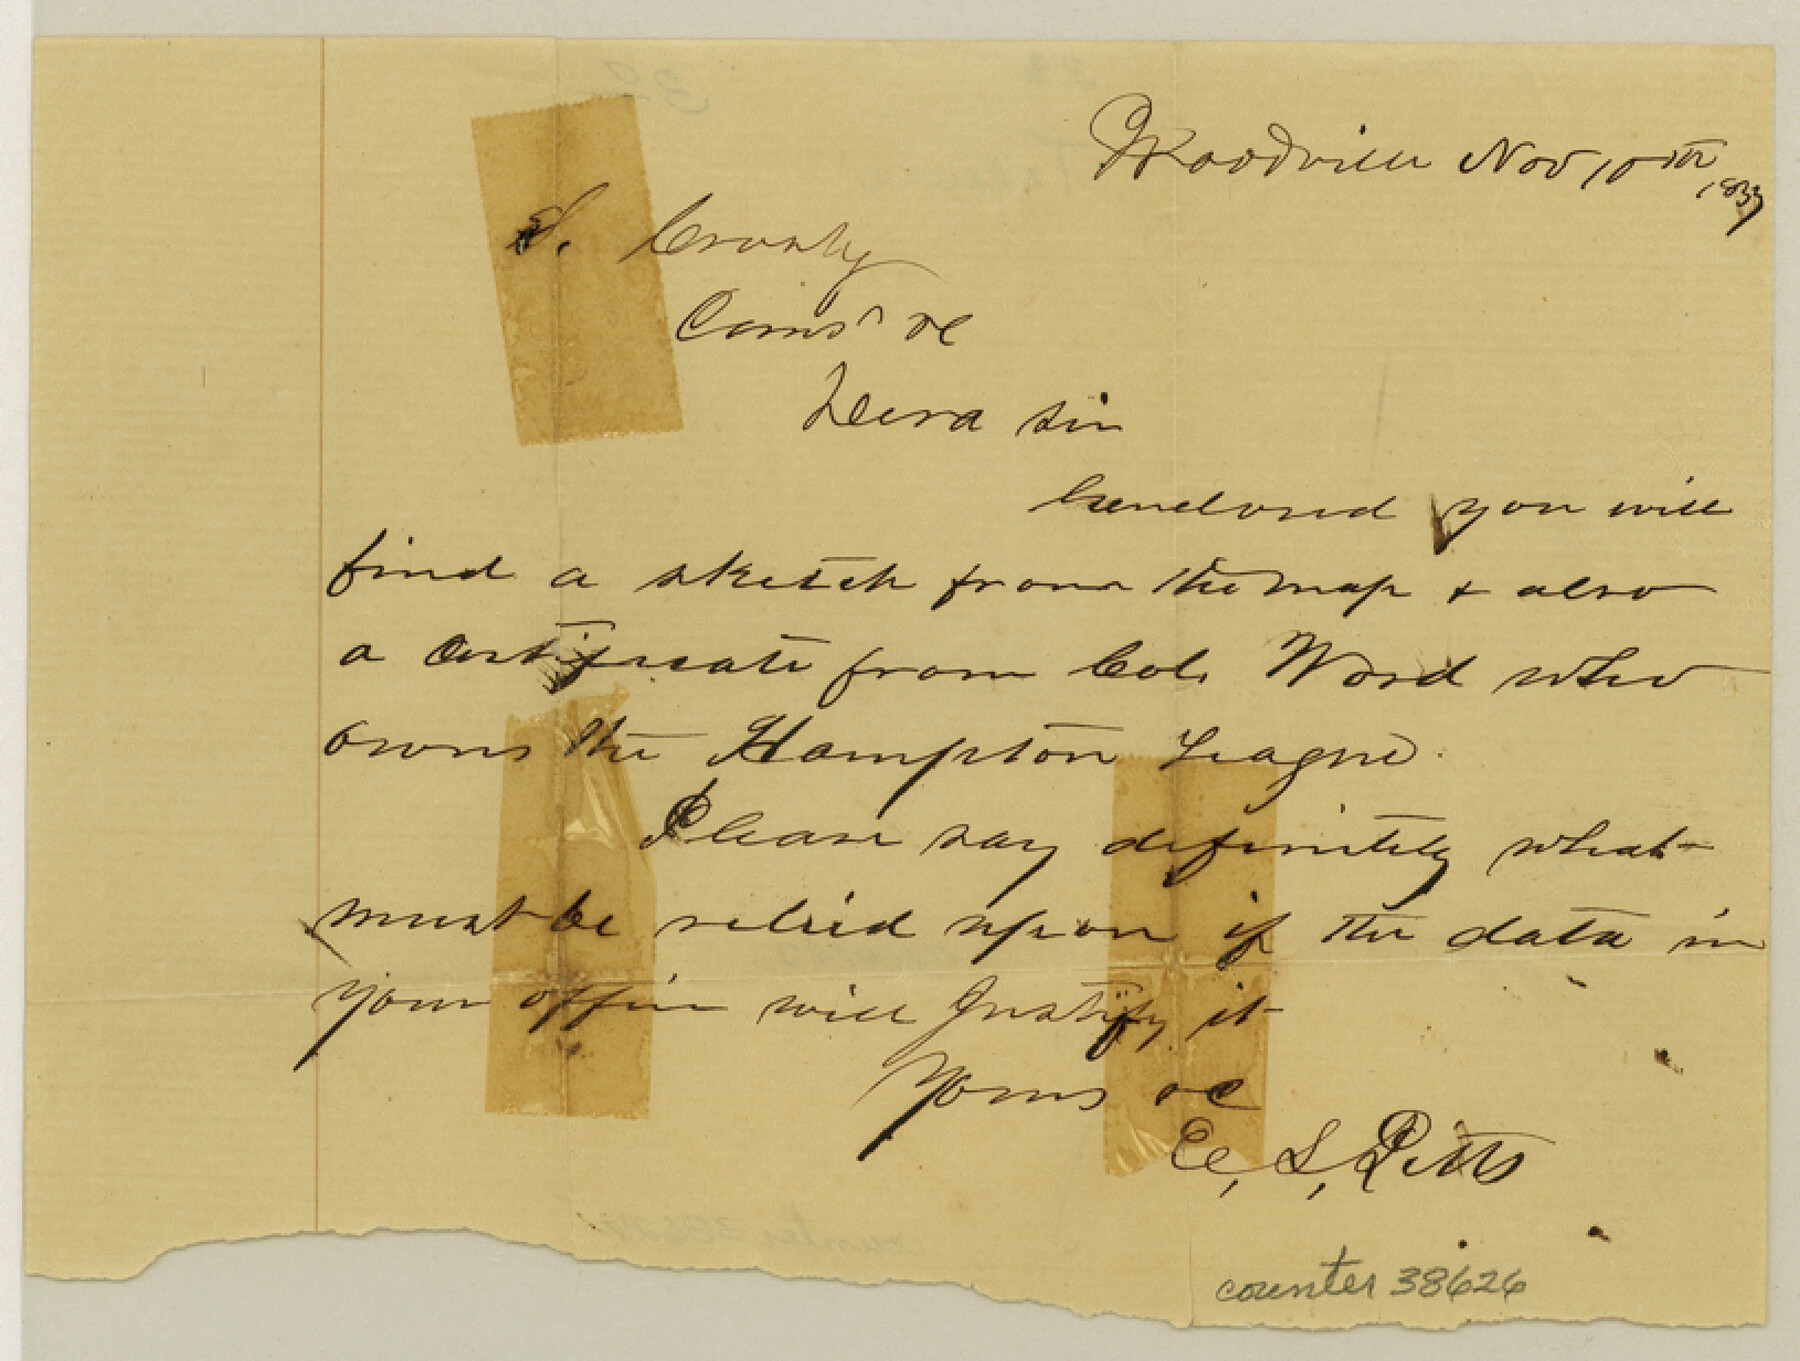 Woodville Nov 10th
S. Crosby
Coms &c
Dear Sir
Enclosed you will
find a sketch from the map & also
a Certificate from Col. Word who
owns the Hampton League.
Please say definitely what
must be relied upon if the data in
your office will Justify it
Yours &c
E, S, Pitts
counter 38626